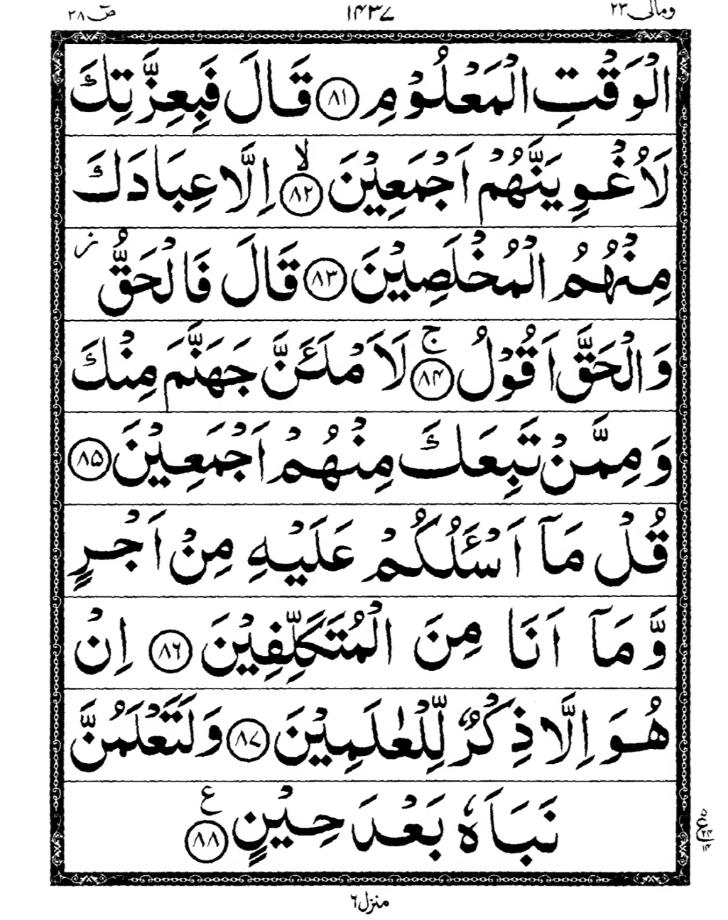 ومالی ۲۳ ۱۴۳۷ صٓ ۳۸
الْوَقْتِ الْمَعْلُوْمِ ﴿۸۱﴾ قَالَ فَبِعِزَّتِكَ
لَاُغْوِيَنَّهُمْ اَجْمَعِيْنَ ۙ﴿۸۲﴾ اِلَّا عِبَادَكَ
مِنْهُمُ الْمُخْلَصِيْنَ ﴿۸۳﴾ قَالَ فَالْحَقُّ ز
وَالْحَقَّ اَقُوْلُ ۚ﴿۸۴﴾ لَاَمْلَـَٔنَّ جَهَنَّمَ مِنْكَ
وَمِمَّنْ تَبِعَكَ مِنْهُمْ اَجْمَعِيْنَ ﴿۸۵﴾
قُلْ مَآ اَسْـَٔلُكُمْ عَلَيْهِ مِنْ اَجْرٍ
وَّمَآ اَنَا مِنَ الْمُتَكَلِّفِيْنَ ﴿۸۶﴾ اِنْ
هُوَ اِلَّا ذِكْرٌ لِّلْعٰلَمِيْنَ ﴿۸۷﴾ وَلَتَعْلَمُنَّ
نَبَاَهٗ بَعْدَ حِيْنٍ ﴿۸۸﴾ ع
۵ ع ۲۴ ۱۴
منزل ۶